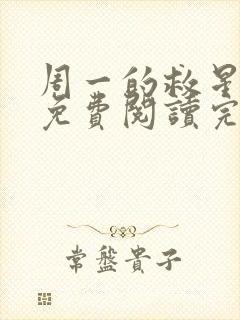 周一的救星
免費閱讀完
常盤貴子